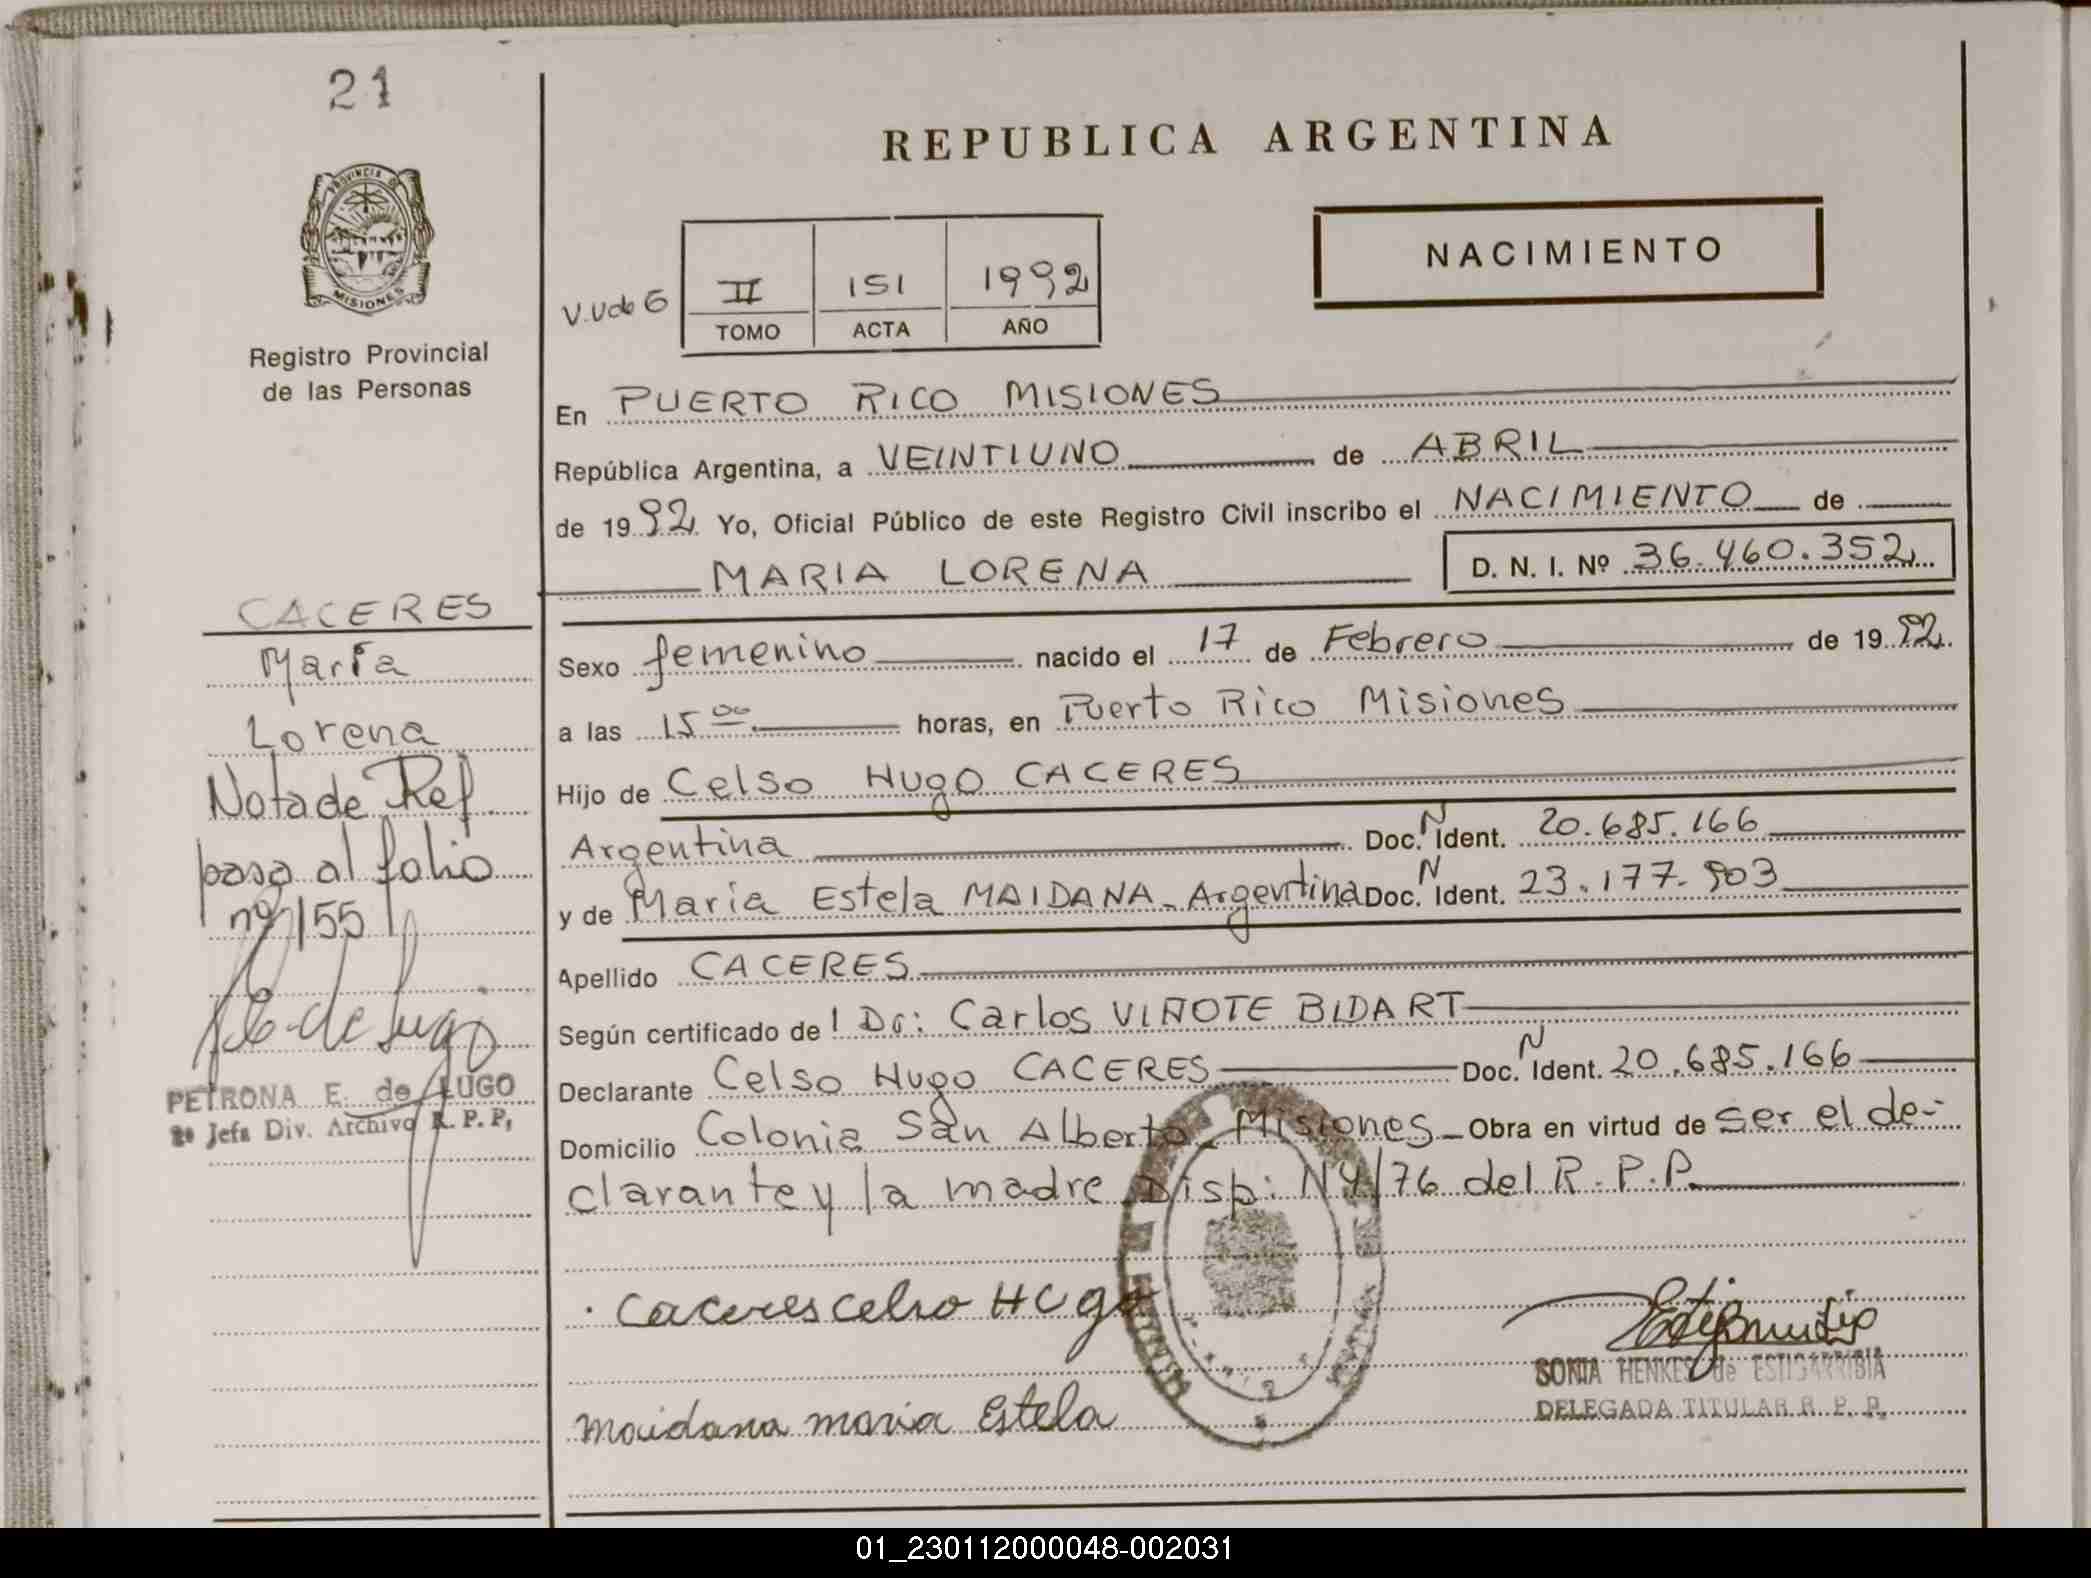 21
PROVINCIA DE
MISIONES
Registro Provincial
de las Personas
CACERES
María
Lorena
Nota de Ref.
pasa al folio
nº 155
PETRONA E. de LUGO
2º Jefa Div. Archivo R. P. P,
REPUBLICA ARGENTINA
NACIMIENTO
II 151 1992
TOMO ACTA AÑO
En PUERTO RICO MISIONES
República Argentina, a VEINTIUNO de ABRIL
de 1992 Yo, Oficial Público de este Registro Civil inscribo el NACIMIENTO de
MARIA LORENA D. N. I. Nº 36.460.352
Sexo femenino nacido el 17 de Febrero de 1992.
a las 15 00 horas, en Puerto Rico Misiones
Hijo de Celso Hugo CACERES
Argentina Doc. N Ident. 20.685.166
y de María Estela MAIDANA - Argentina Doc. N Ident. 23.177.903
Apellido CACERES
Según certificado de l Dr: Carlos VIÑOTE BIDART
Declarante Celso Hugo CACERES Doc. N Ident. 20.685.166
Domicilio Colonia San Alberto - Misiones - Obra en virtud de ser el de-
clarante y la madre Disp: Nº4/76 del R.P.P.
Caceres Celso HUgo
SONIA HENKES de ESTIGARRIBIA
DELEGADA TITULAR R. P. P.
Maidana Maria Estela
01_230112000048-002031